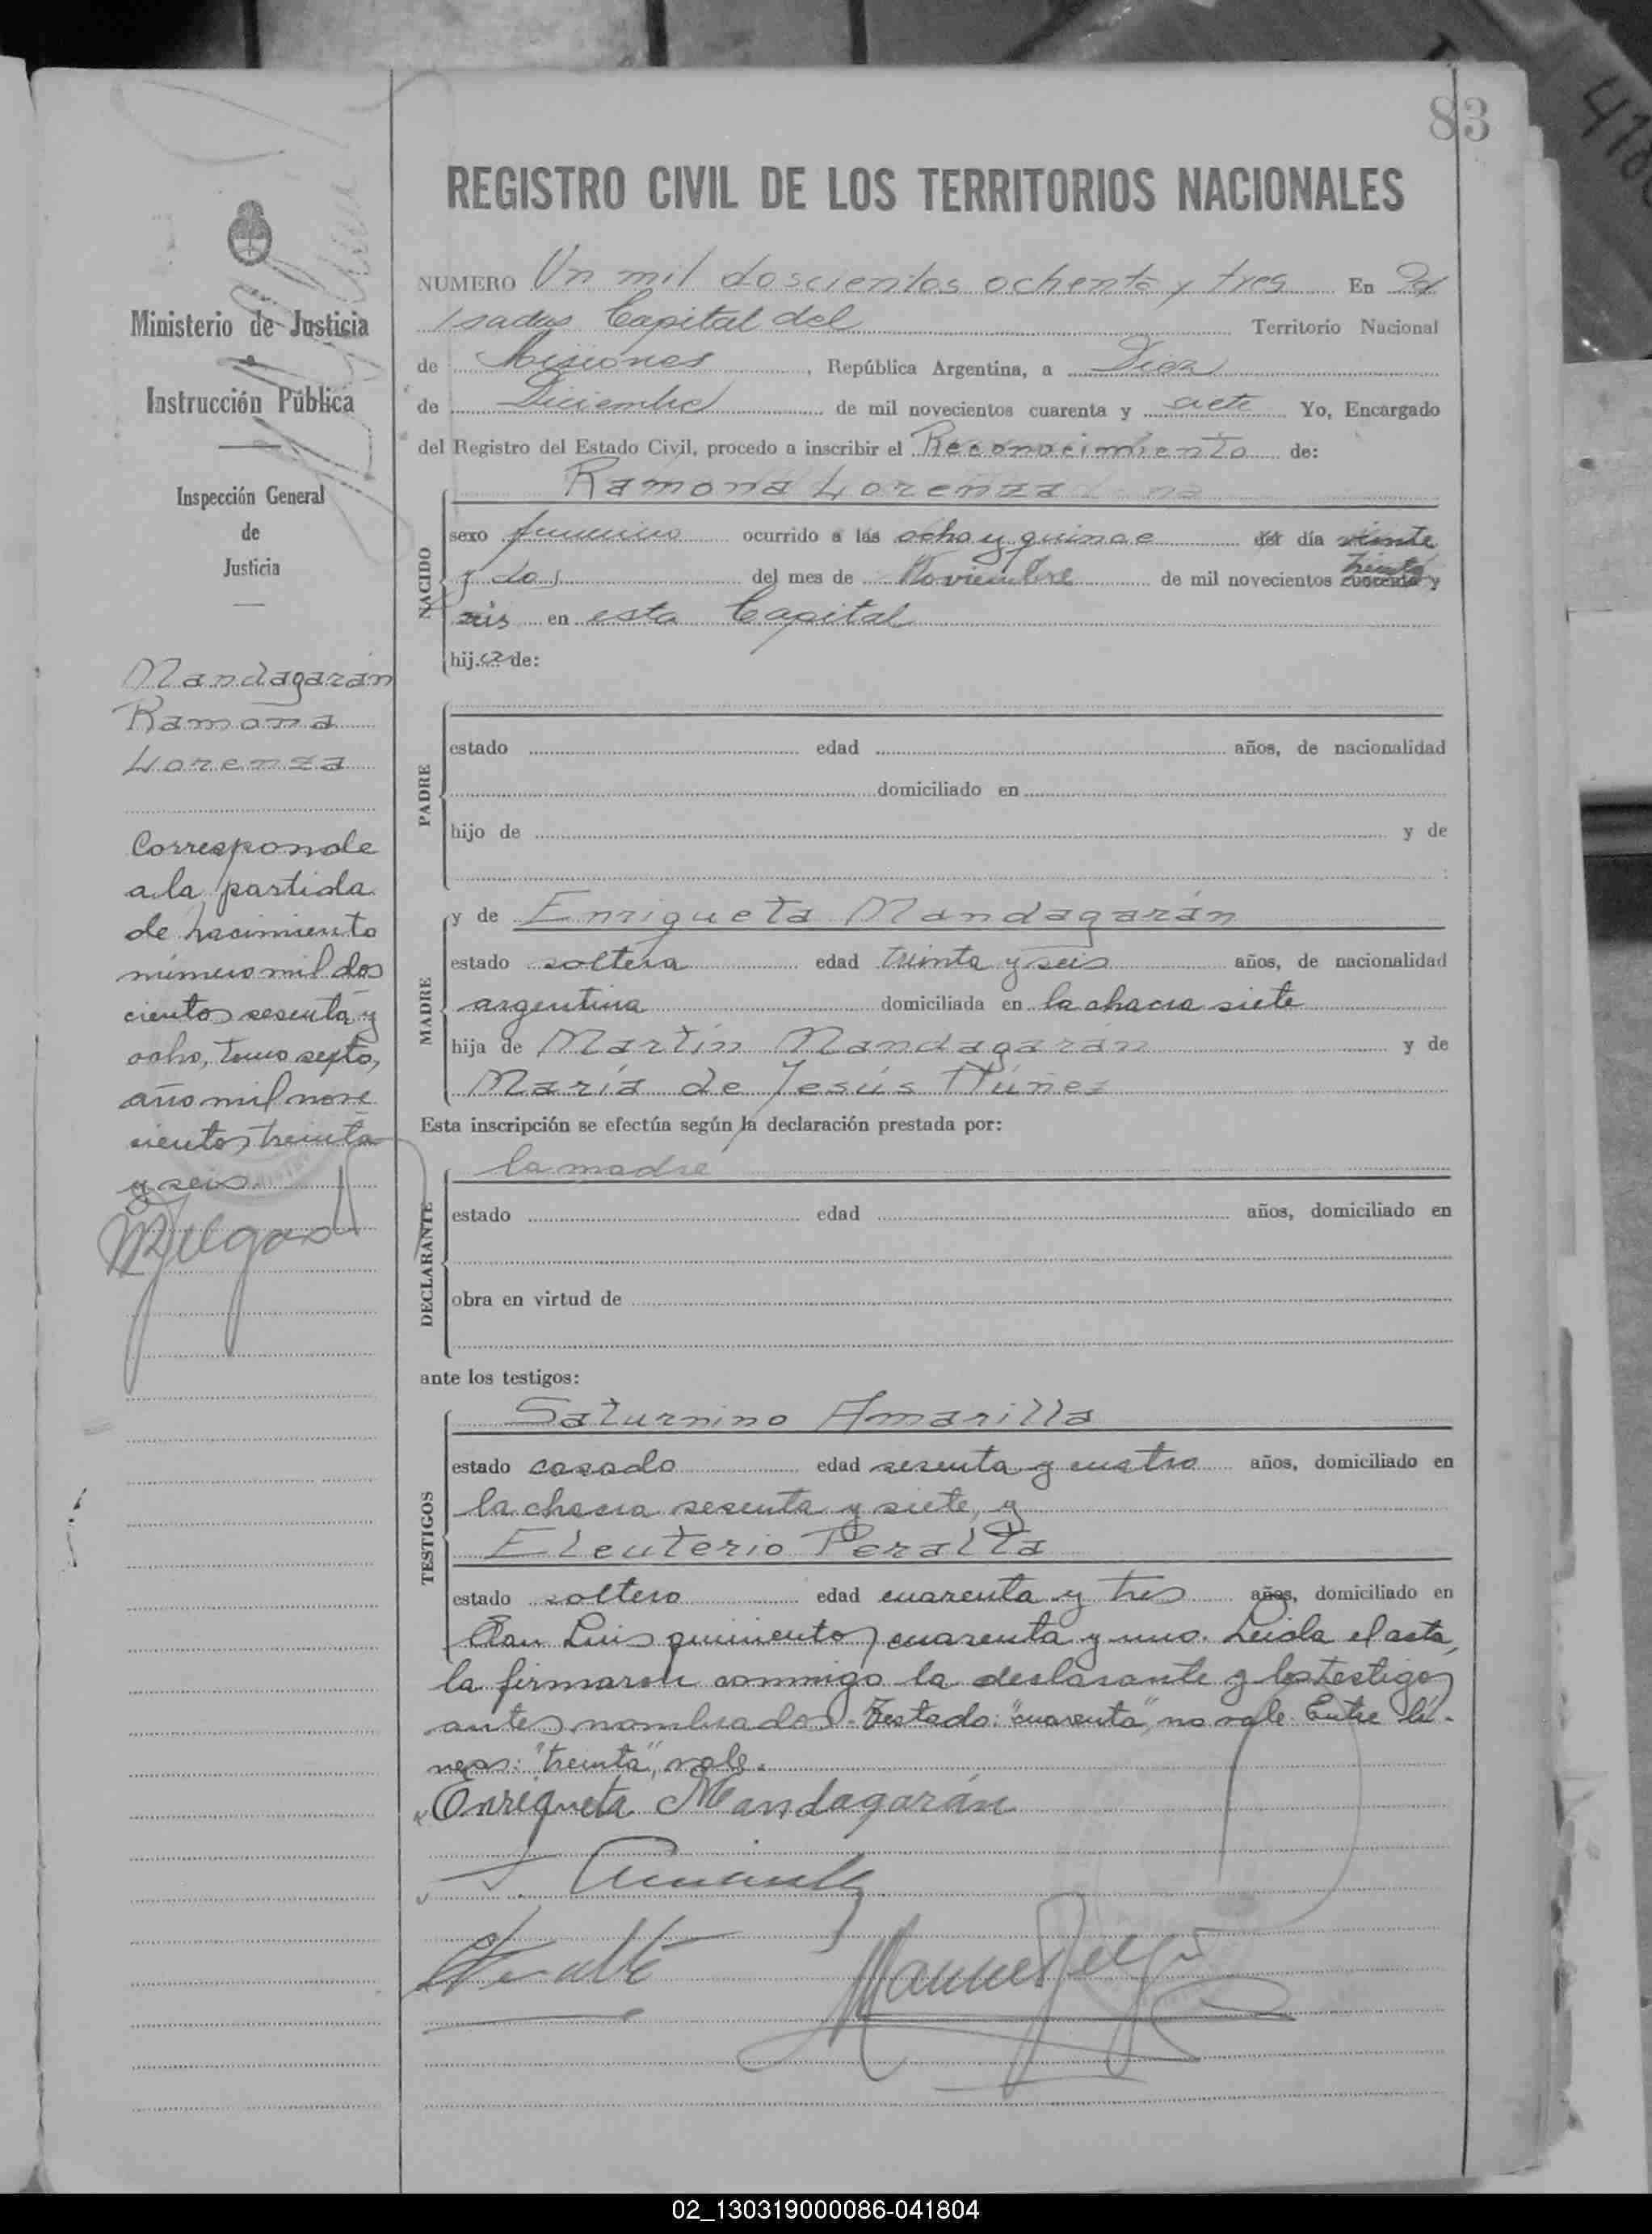 83
REGISTRO CIVIL DE LOS TERRITORIOS NACIONALES
Ministerio de Justicia
e
Instrucción Pública
Inspección General
de
Justicia
Mandagarán
Ramona
Lorenza
Corresponde
a la partida
de nacimiento
número mil dos
cientos sesenta y
ocho, tomo sexto,
año mil nove
cientos treinta
y seis.
NUMERO Un mil doscientos ochenta y tres En Po
sadas Capital del Territorio Nacional
de Misiones, República Argentina, a Diez
de Diciembre de mil novecientos cuarenta y siete Yo, Encargado
del Registro del Estado Civil, procedo a inscribir el Reconocimiento de:
Ramona Lorenza
NACIDO
sexo femenino ocurrido a las ocho y quince del día veinte
y dos del mes de Noviembre de mil novecientos cuarenta treinta y
seis en esta Capital
hija de:
PADRE
estado edad años, de nacionalidad
domiciliado en
hijo de y de
MADRE
y de Enriqueta Mandagarán
estado soltera edad treinta y seis años, de nacionalidad
argentina domiciliada en la chacra siete
hija de Martín Mandagarán y de
María de Jesús Núñez
Esta inscripción se efectúa según la declaración prestada por:
DECLARANTE
la madre
estado edad años, domiciliado en
obra en virtud de
ante los testigos:
TESTIGOS
Saturnino Amarilla
estado casado edad sesenta y cuatro años, domiciliado en
la chacra sesenta y siete, y
Eleuterio Peralta
estado soltero edad cuarenta y tres años, domiciliado en
San Luis quinientos cuarenta y uno. Leida el acta,
la firmaron conmigo la declarante y los testigos
antes nombrados. Testado: "cuarenta", no vale. Entre lí-
neas: "treinta", vale.
Enriqueta Mandagarán
02_130319000086-041804